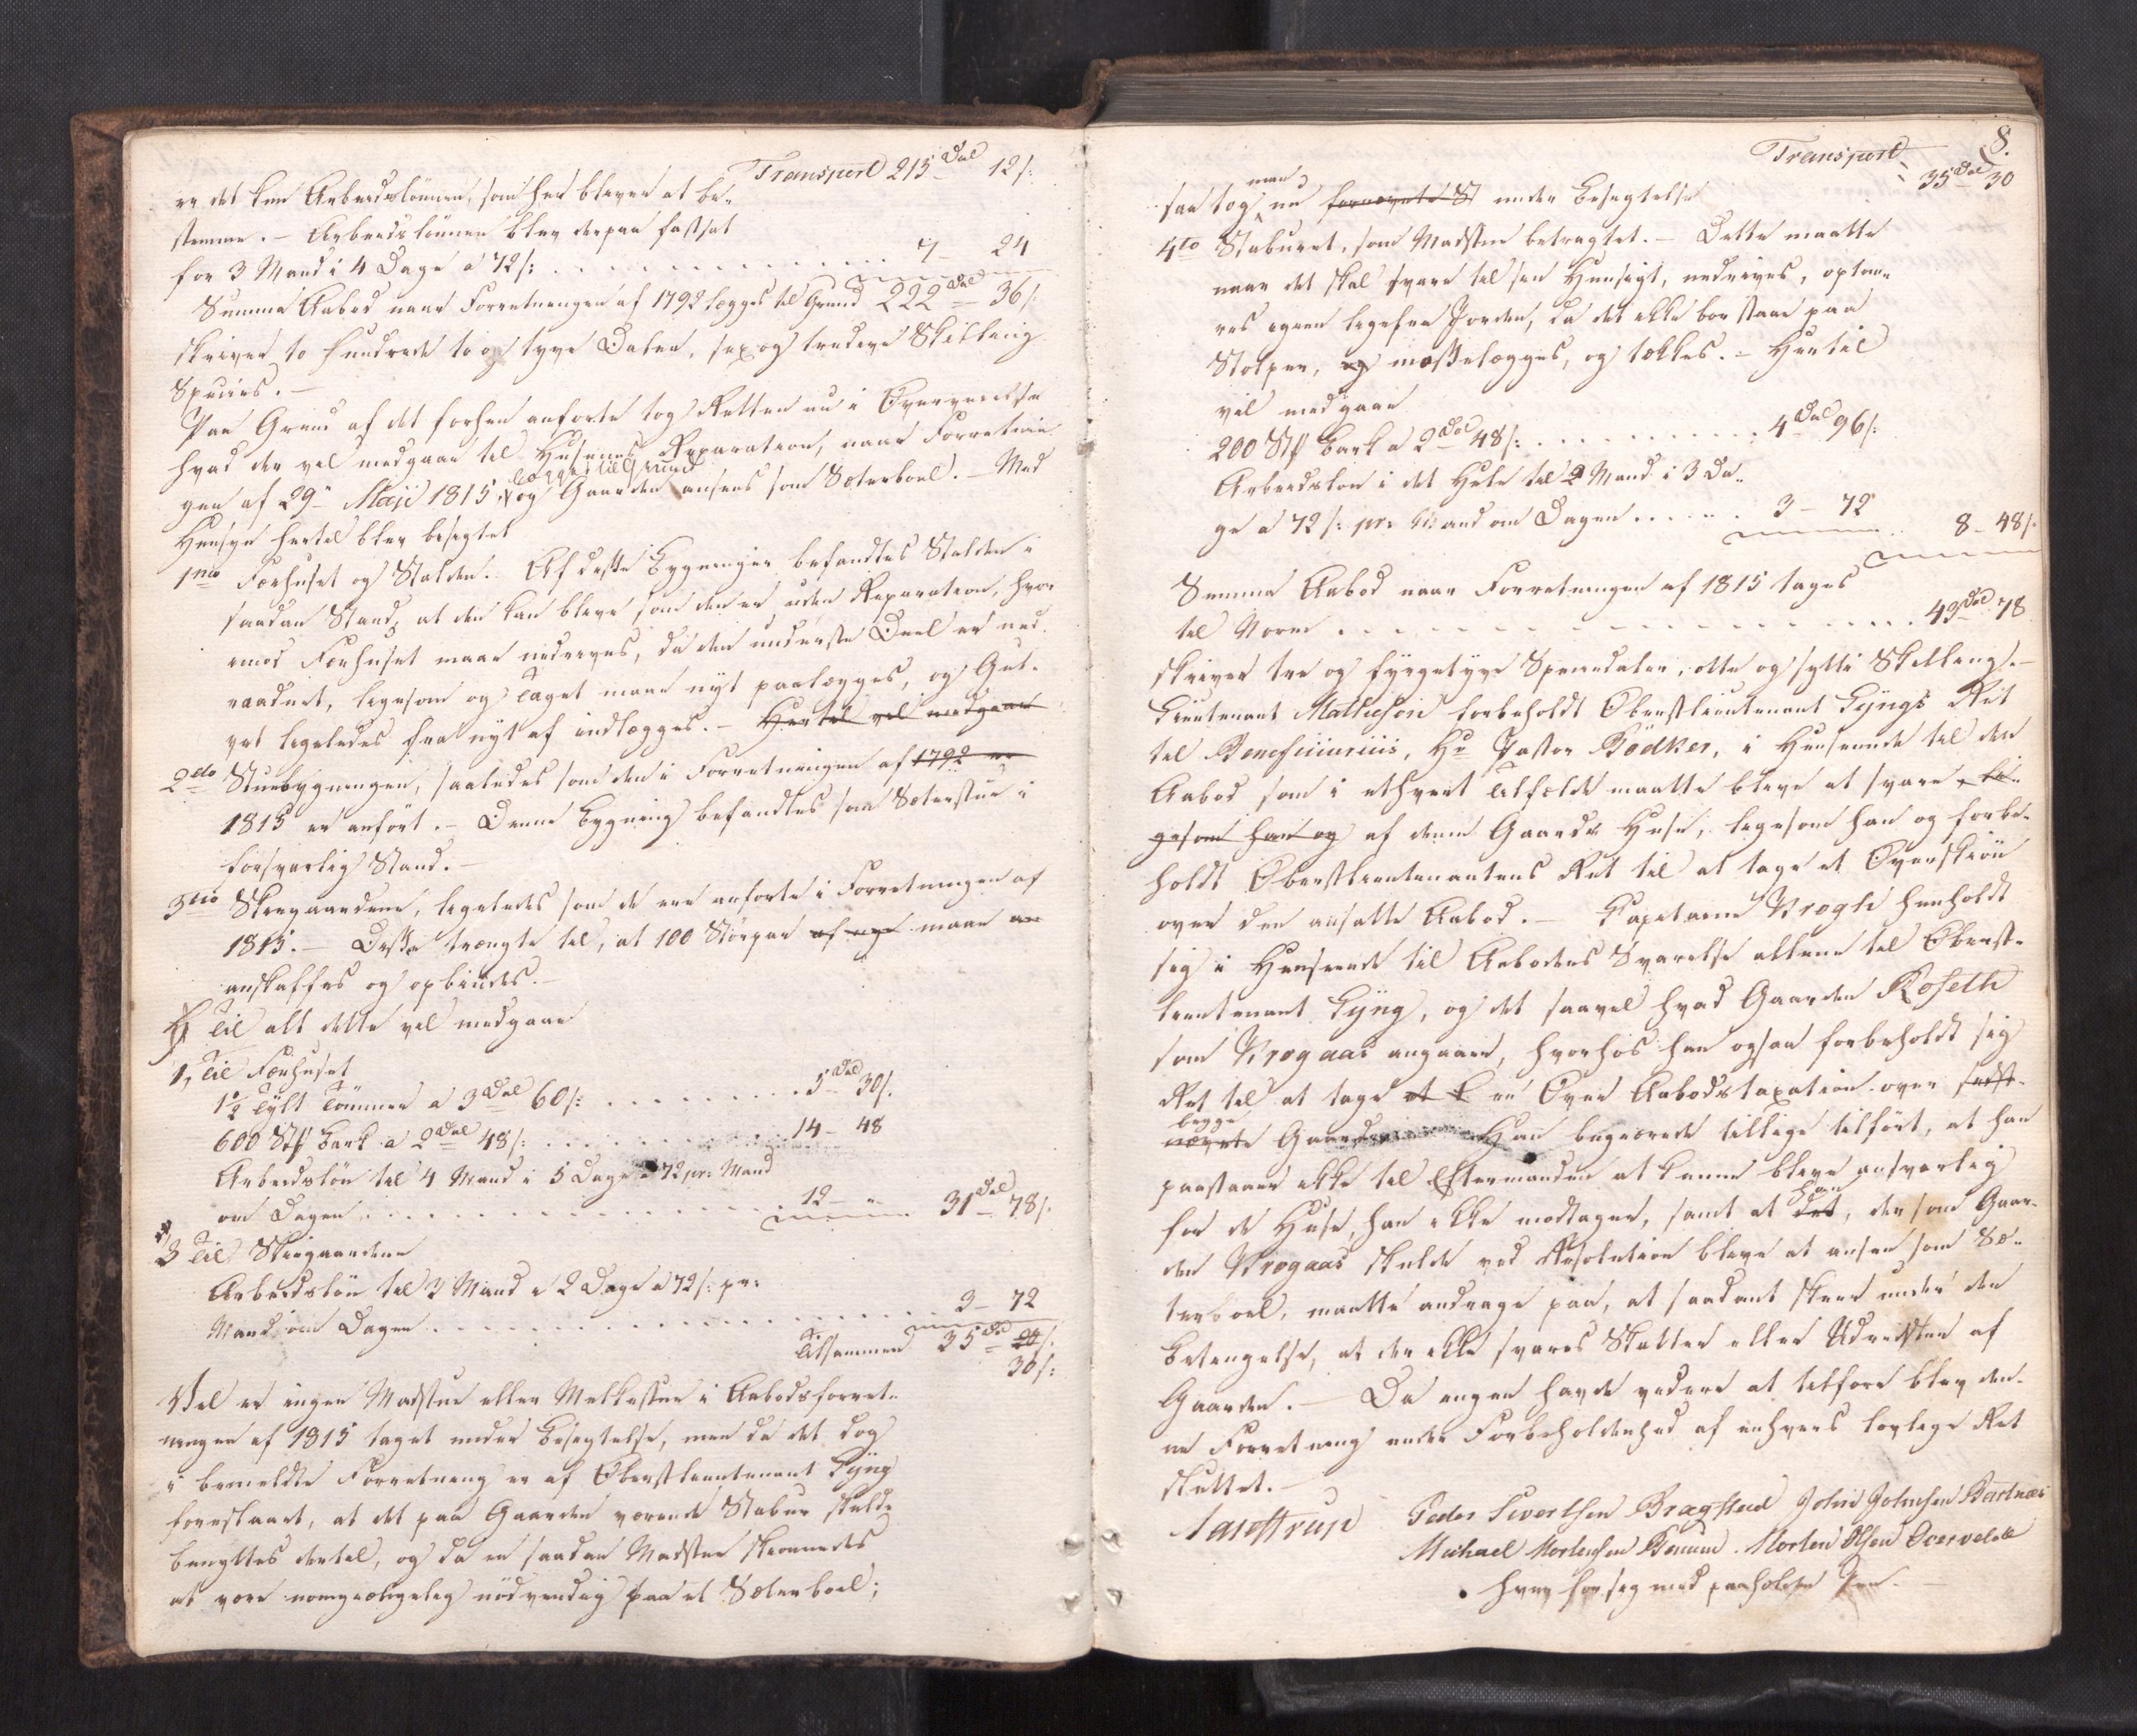 Transport 215 Dal 12 s:
er det kun Arbeidslönnen, som her bliver at be-
stemme. – Arbeidslönnen blev derpaa fastsat
for 3 Mand i 4 Dage a 72 s: . . . . . . . . 7 – 24
Summa Aabod naar Forretningen af 1792 lægges til Grund 222 Dal 36 s:
skriver to hundrede to og tyve Daler, sex og tredive Skilling
Species. –
Paa Grund af det forhen anforte tog Retten nu i Overveielse
hvad der vil medgaae til Husenes Reparation, naar Forretnin
lægges til Grund
gen af 29 Maji 1815, og Gaarden ansees som Sæterboel. – Med
Hensyn hertil blev besigtet
1mo Fæhuset og Stalden. Af disse Bygninger befandtes Stalden i
saadan Stand, at den kan blive som den er uden Reparation, hvor
imod Fæhuset maae nedrives, da den underste Deel er ned-
raadnet, ligesom og Taget maae nyt paalægges, og Gul-
vet ligeledes fra nyt af indlægges. – Hertil vil medgaae
2do Stuebygningen, saaledes som den i Forretningen af 1792 er
1815 er anfört. – Denne Bygning befandtes som Sæterstue i
forsvarlig Stand. –
3tio Skiegaardene, ligeledes som de ere anforte i Forretningen af
1815. – Disse trængte til, at 100 Störpar af nye maae an
anskaffes og opbindes. –
H Til alt dette vil medgaae
1, Til Fæhuset
1½ Tylt Tömmer a 3 Dal 60 s: . . . . . . . . 5 Dal 30 s.
600 Stk Bark a 2 Dal 48 s: . . . . . . . . 14 – 48
Arbeidslön til 4 Mand i 5 Dage a 72 pr: Mand
om Dagen . . . . . . . . 12 – " 31 Dal 78 s.
3 Til Skiegaardene
Arbeidslön til 3 Mand i 2 Dage a 72 s: pr:
Mand om Dagen . . . . . . . . 3 – 72
Tilsammen 35 Dal 24 s.
30 s:
Vel er ingen Madstue eller Melkestue i Aabodsforret-
ningen af 1815 taget under Besigtelse, men da det dog
i bemeldte Forretning er af Oberstlieutenant Lyng
foreslaaet, at det paa Gaarden værende Stabur skulde
benyttes dertil, og da en saadan Madstue skiönnedes
at være uomgiængelig nödvendig paa et Sæterboel;
8.
Transport
35 Dal 30
man
saa tog nu fornævnte St under Besigtelse
4to Staburet, som Madstue betragtet. – Dette maatte
naar det skal svare til sin Hensigt, nedrives, optöm-
res igien ligefra Jorden, da det ikke bör staae paa
Stolper, og mosselægges, og tækkes. – Hertil
vil medgaae
200 Stk Bark a 2 Dal 48 s: . . . . . . . . 4 Dal 96 s:
Arbeidslön i det Hele til 2 Mand i 3 Da-
ge a 72 s: pr: Mand om Dagen . . . . . . 3 – 72
8 – 48 s.
Summa Aabod naar Forretningen af 1815 tages
til Norm . . . . . . . . 43 Dal 78
skriver tre og fyrgetyve Speciedaler, otte og sytti Skilling. –
Lieutenant Mathieson forbeholdt Oberstlieutenant Lyngs Ret
til Beneficiarius, Hr Pastor Bödker, i Henseende til den
Aabod som i ethvert Tilfælde maatte blive at svare, li-
gesom han og af denne Gaards Huse, ligesom han og forbe-
holdt Oberstlieutenantens Ret til at tage et Overskiön
over den ansatte Aabod. – Capitaine Krogh henholdt
sig i Henseende til Aabodens Svarelse allene til Oberst-
lieutenant Lyng, og det saavel hvad Gaarden Roseth
som Krogaas angaaer, hvorhos han ogsaa forbeholdt sig
Ret til at tage et en Over Aabodstaxation over sidst-
begge
nævnte Gaarde. Han begiærede tillige tilfört, at han
paastaaer ikke til Eftermanden at kunne blive ansvarlig
han
for de Huse, han ikke modtager, samt at det, dersom Gaar-
den Krogaas skulde ved Resolution blive at ansee som Sæ-
terboel, maatte andrage paa, at saadant skeer under den
Betingelse, at der ikke svares Skatter eller Udredster af
Gaarden. – Da ingen havde videre at tilföre blev den-
ne Forretning under Forbeholdenhed af enhvers lovlige Ret
sluttet. –
Peder Sivertsen Bragstad John Johnsen Bartnæs
Michael Mortensen Benum. Morten Olsen Overvelde
hver for sig med paaholden Pen. –